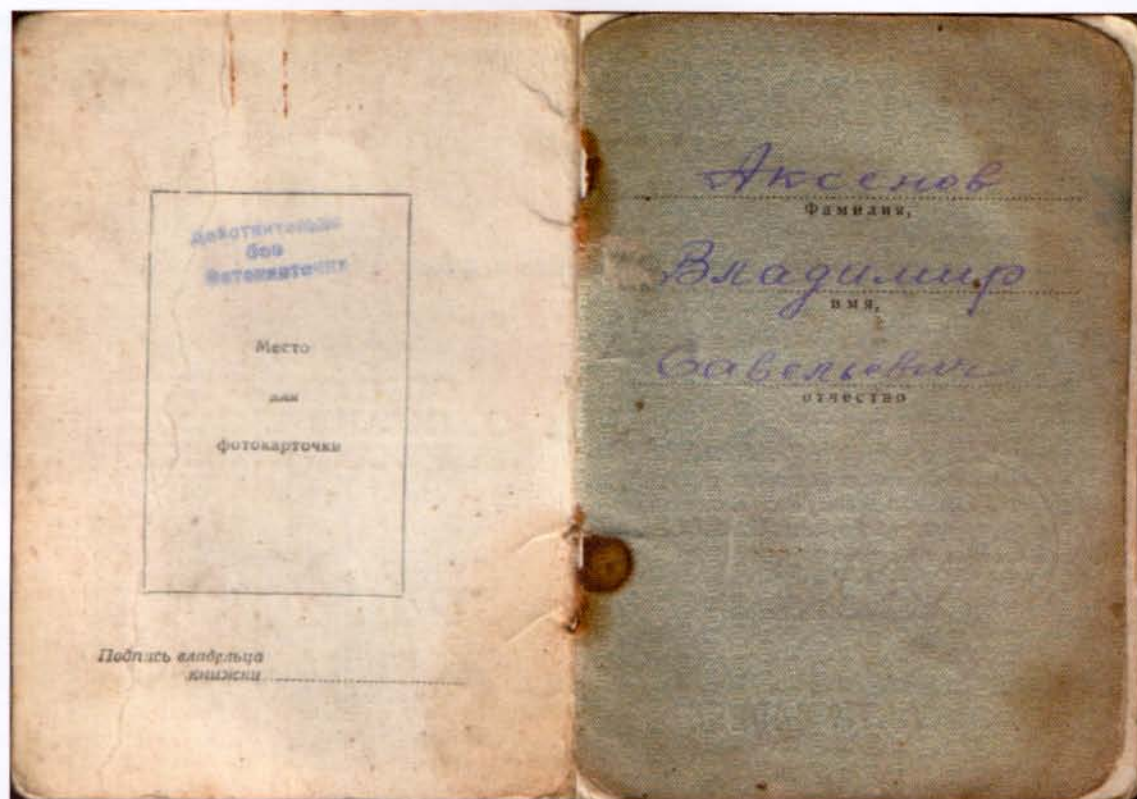 Действительно
без
фотокарточки
Место
для
фотокарточки
Подпись владельца
книжки
Аксенов
Фамилия,
Владимир
имя,
Савельевич
отчество